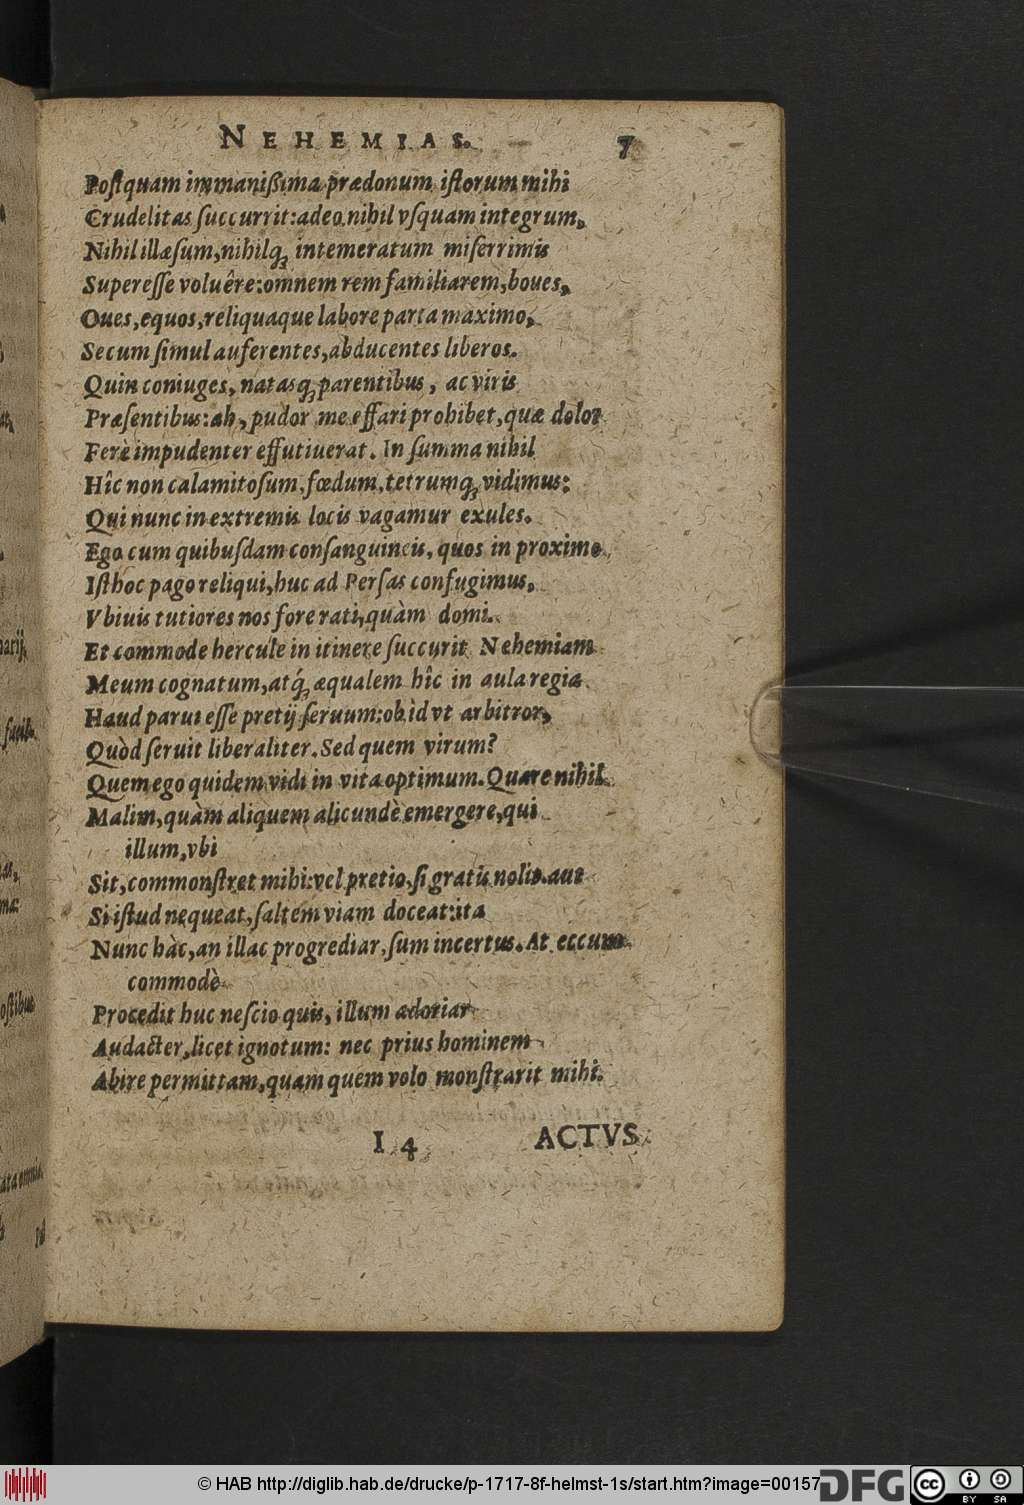 NEHEMIAS. 7
Postquam immanißima prædonum istorum mihi
Crudelitas succurrit: adeo nihil vsquam integrum,
Nihil illæsum, nihilq́; intemeratum miserrimis
Superesse voluêre: omnem rem familiarem, boues,
Oues, equos, reliquaque labore parta maximo,
Secum simul auferentes, abducentes liberos.
Quin coniuges, natasq́; parentibus, ac viris
Præsentibus: ah, pudor me effari prohibet, quæ dolor
Ferè impudenter effutiuerat. In summa nihil
Hîc non calamitosum, fœdum, tetrumq́; vidimus:
Qui nunc in extremis locis vagamur exules.
Ego cum quibusdam consanguineis, quos in proximo
Isthoc pago reliqui, huc ad Persas confugimus,
Vbiuis tutiores nos fore rati, quàm domi.
Et commode hercule in itinere succurit Nehemiam
Meum cognatum, atq́; æqualem hîc in aula regia
Haud parui esse pretij seruum: ob id vt arbitror,
Quòd seruit liberaliter. Sed quem virum?
Quem ego quidem vidi in vita optimum. Quare nihil
Malim, quàm aliquem alicundè emergere, qui
illum, vbi
Sit, commonstret mihi: vel pretio, si gratis nolit. aut
Si istud nequeat, saltem viam doceat: ita
Nunc hàc, an illac progrediar, sum incertus. At eccum
commodè
Procedit huc nescio quis, illum adoriar
Audacter, licet ignotum: nec prius hominem
Abire permittam, quam quem volo monstrarit mihi.
I 4 ACTVS
© HAB http://diglib.hab.de/drucke/p-1717-8f-helmst-1s/start.htm?image=00157
DFG
cc BY SA